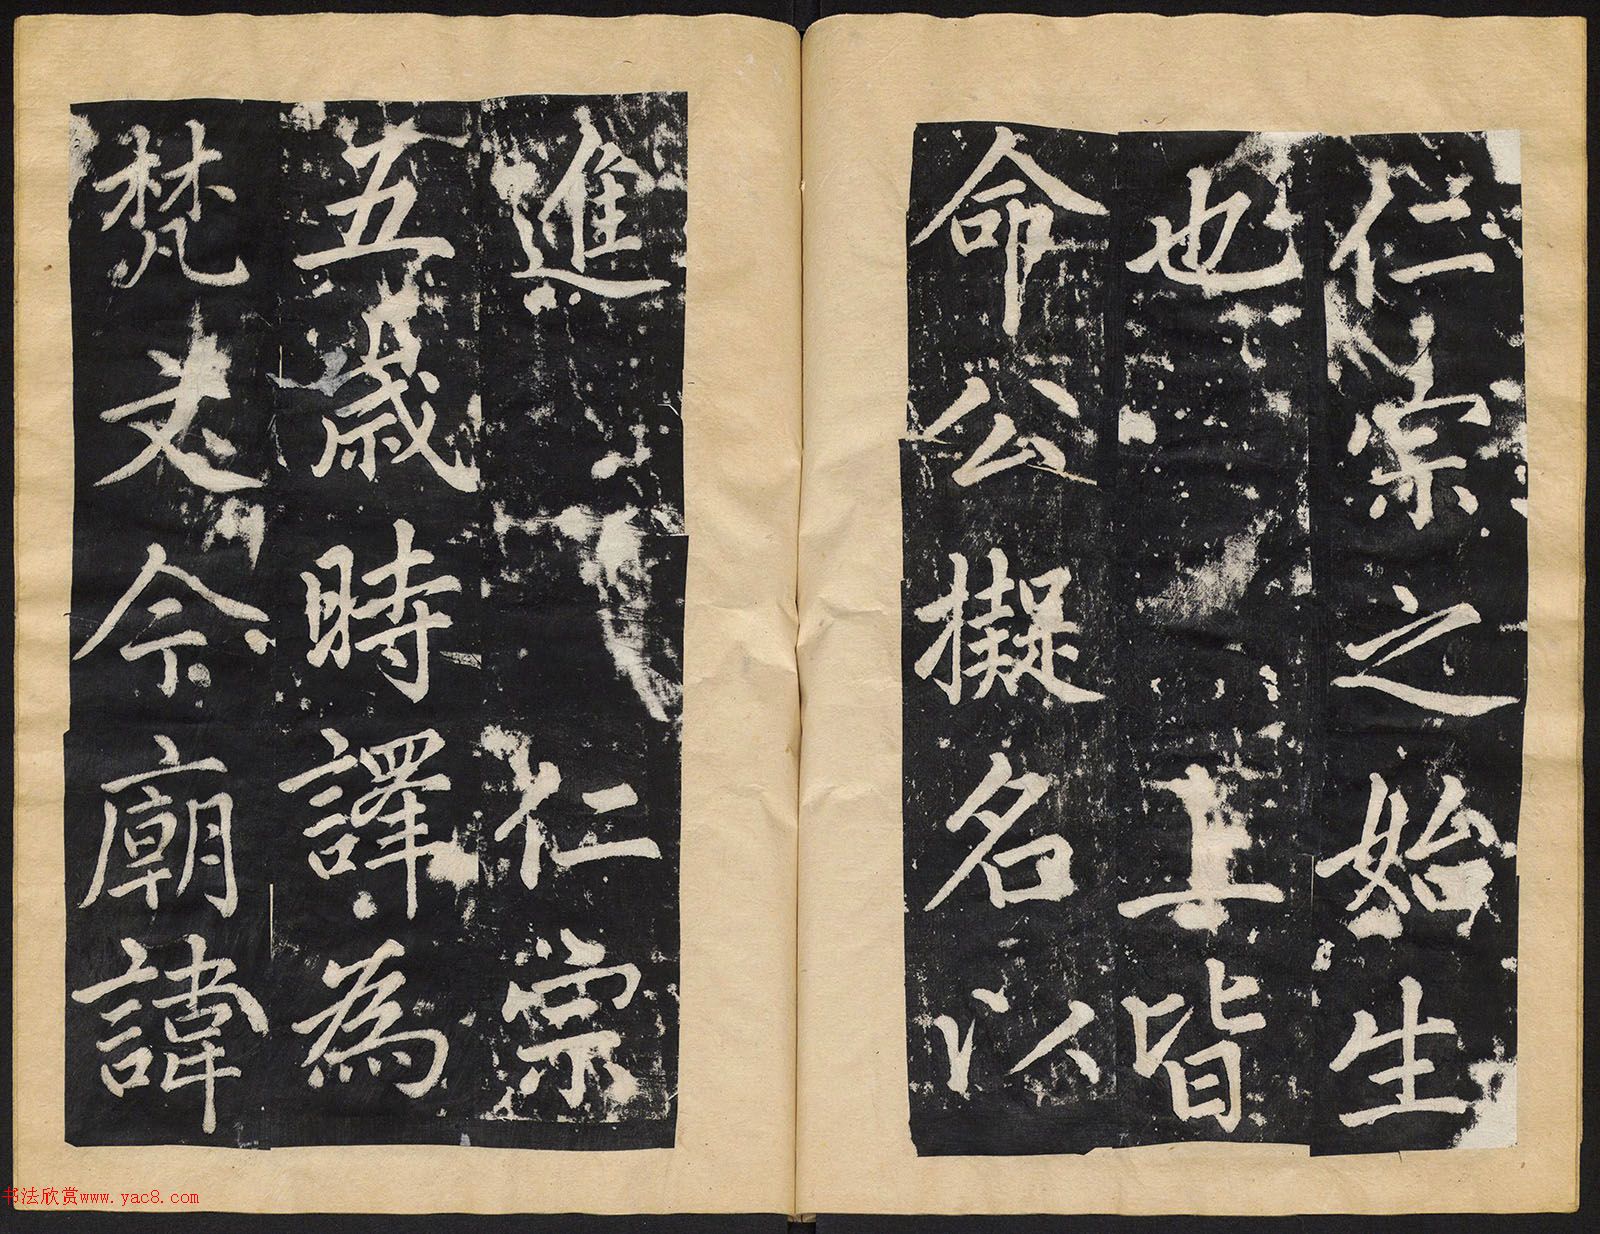 仁宗之始生
也 上皆
命公擬名以
進 仁宗
五歲時譯為
梵文今廟諱
书法欣赏www.yac8.com